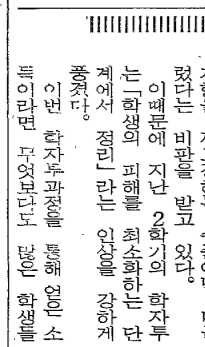 렀다는 비판을 받고 있다.
이때문에 지난 2학기의 학자투
는「학생의 피해를 최소화하는 단
계에서 정리」라는 인상을 강하게
풍겼다.
이번 학자투과정을 통해 얻은 소
득이라면 무엇보다도 많은 학생들